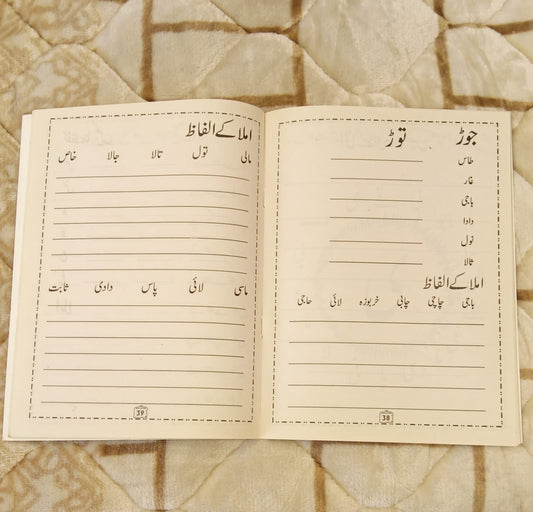 جوڑ توڑ
طاس
غار
باجی
دادا
نول
ٹالا
املا کے الفاظ
باجی چاچی چابی خربوزہ لائی حاجی
38
املا کے الفاظ
مالی تول تالا جالا خاص
ماسی لائی پاس دادی ثابت
39